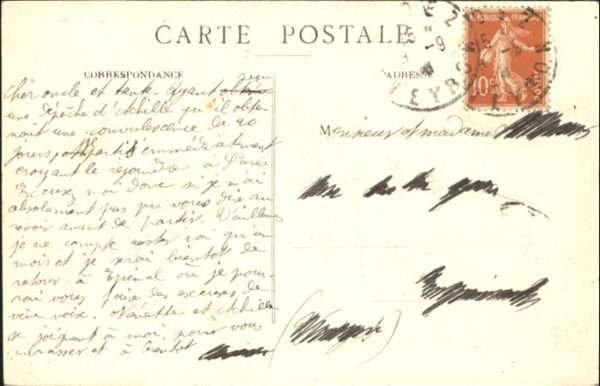 CARTE POSTALE
CORRESPONDANCE
ADRESSE
RÉPUBLIQUE FRANÇAISE
10c
Cher oncle et tante. Ayant
une dépêche d'Achille qu'il obte-
nait une convalescence de 20
jours, partis immediatement
croyant le rejoindre à Paris
Excusez moi donc si je n'ai
absolument pas pu vous dire au
revoir avant de partir. D'ailleurs
je ne compte rester ici qu'un
mois et je serai bientôt de
retour à Epinal où je pour-
rai vous faire des excuses de
vive voix. Ninette et Achille
se joignent à moi pour vous
embrasser et à bientôt
Monsieur et madame
(Vosges)